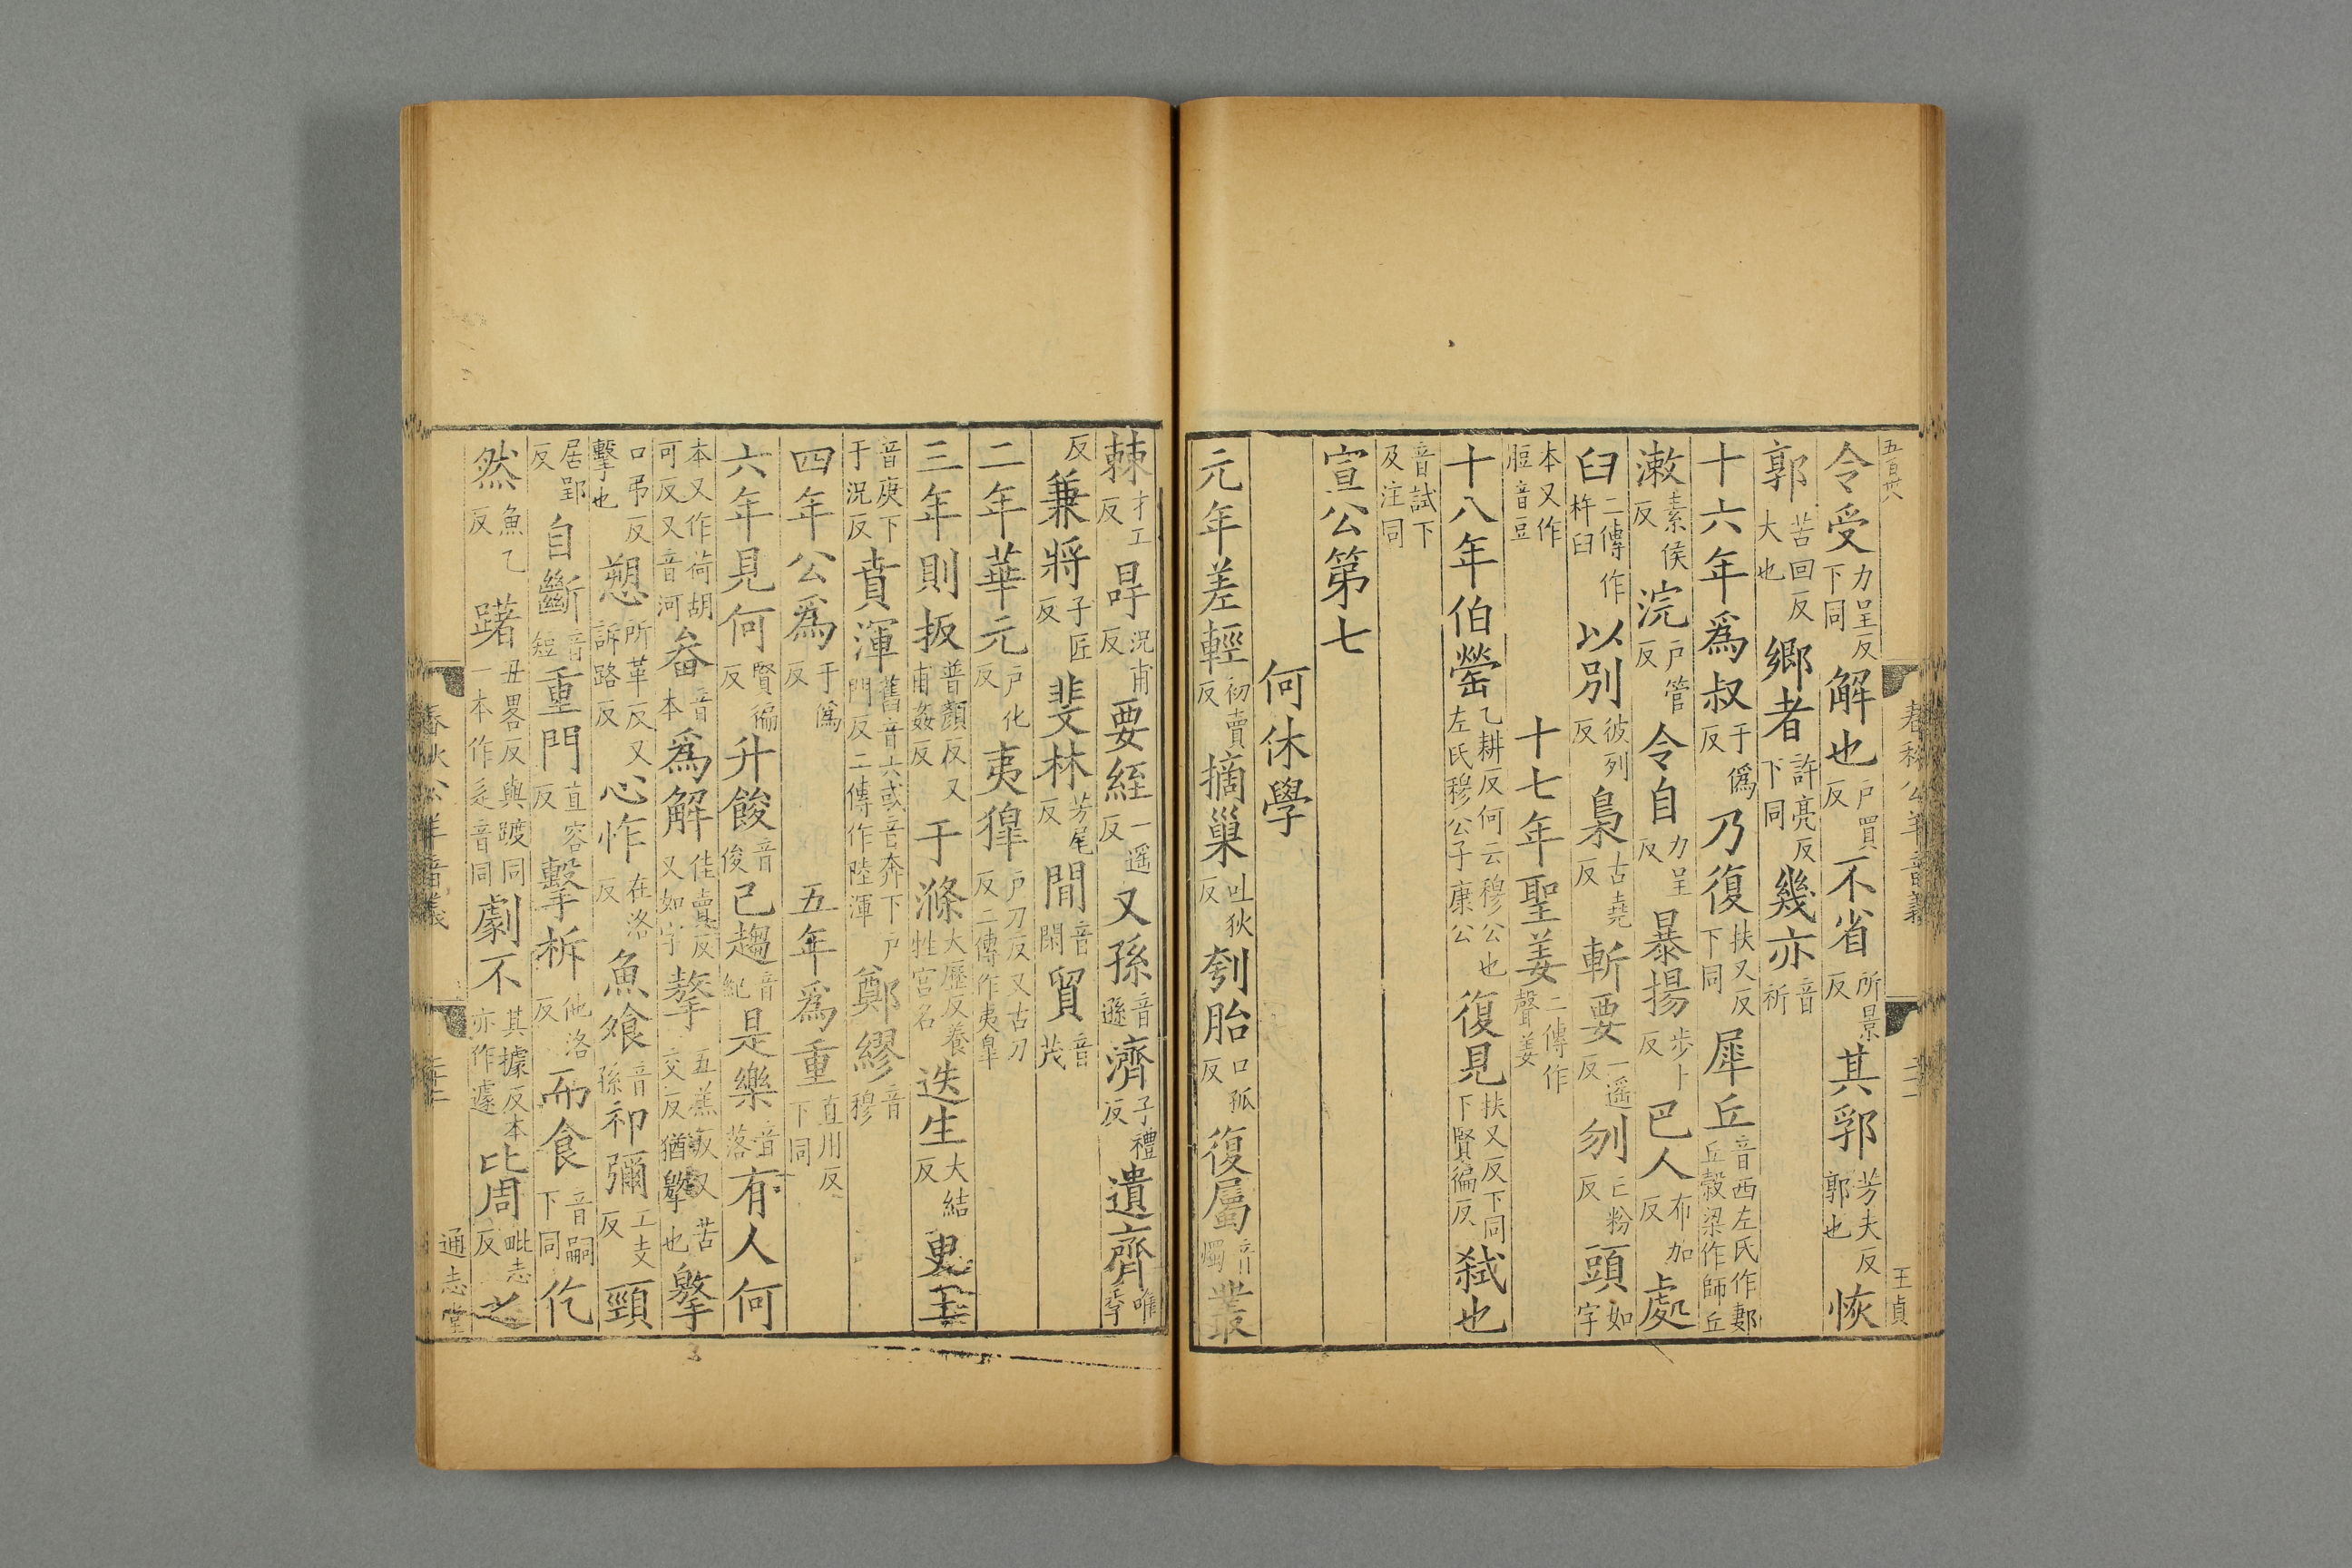 五百六
令受力呈反下同解也戶買反不省所景反其郛芳夫反郭也恢
郭苦回反大也鄉者許亮反下同幾亦音祈
十六年爲叔于僞反乃復扶又反下同犀丘音西左氏作郪丘穀梁作師丘
漱素侯反浣戶管反令自力呈反暴揚步卜反巴人布加反處
臼二傳作杵臼以別彼列反梟古堯反斬要一遥反刎亡粉反頭如字
本又作脰音豆十七年聖姜二傳作聲姜
十八年伯罃乙耕反何云穆公也左氏穆公子康公復見扶又反下同下賢徧反弑也
音試下及注同
宣公第七
何休學
元年差輕初賣反摘巢吐狄反刳胎口孤反復屬音燭叢
春秋公羊音義
王貞
棘才工反冔況甫反要絰一遥反又孫音遜濟子禮反遺齊唯季
反兼將子匠反斐林芳尾反閒音閑貿音茂
二年華元戶化反夷獋戶刀反又古刀反二傳作夷皐
三年則扳普顏反又甫姦反于滌大歷反養牲宮名迭生大結反更王
音庚下于況反賁渾舊音六或音奔下戶門反二傳作陸渾鄭繆音穆
四年公爲于僞反五年爲重直用反下同
六年見何賢徧反升餕音俊已趨音紀是樂音落有人何
本又作荷胡可反又音河畚音本爲解佳賣反又如字摮五羔反又苦交反猶擊也擊
口弔反擊也愬所革反又訴路反心怍在洛反魚飧音孫祁彌工支反頸
居郢反自斷音短重門直容反擊柝他洛反而食音嗣下同仡
然魚乙反躇丑畧反與踱同一本作辵音同劇不其據反本亦作遽比周毗志反之
春秋公羊音義
通志堂